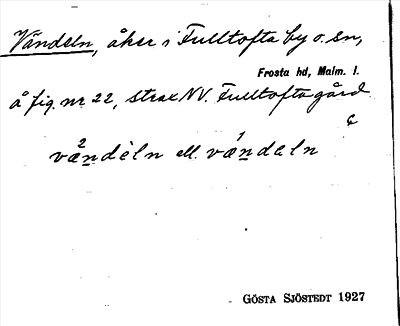 Vändeln, åker i Fulltofta by o. sn,
Frosta hd, Malm. l.
å fig. nr 22, strax NV. Fulltofta gård
væ²ndèln ell. væ¹ndeln
GÖSTA SJÖSTEDT 1927